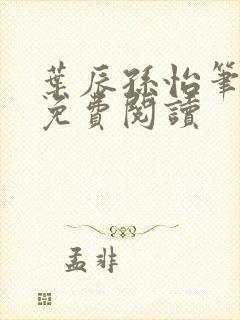 葉辰孫怡筆
免費閱讀
孟非